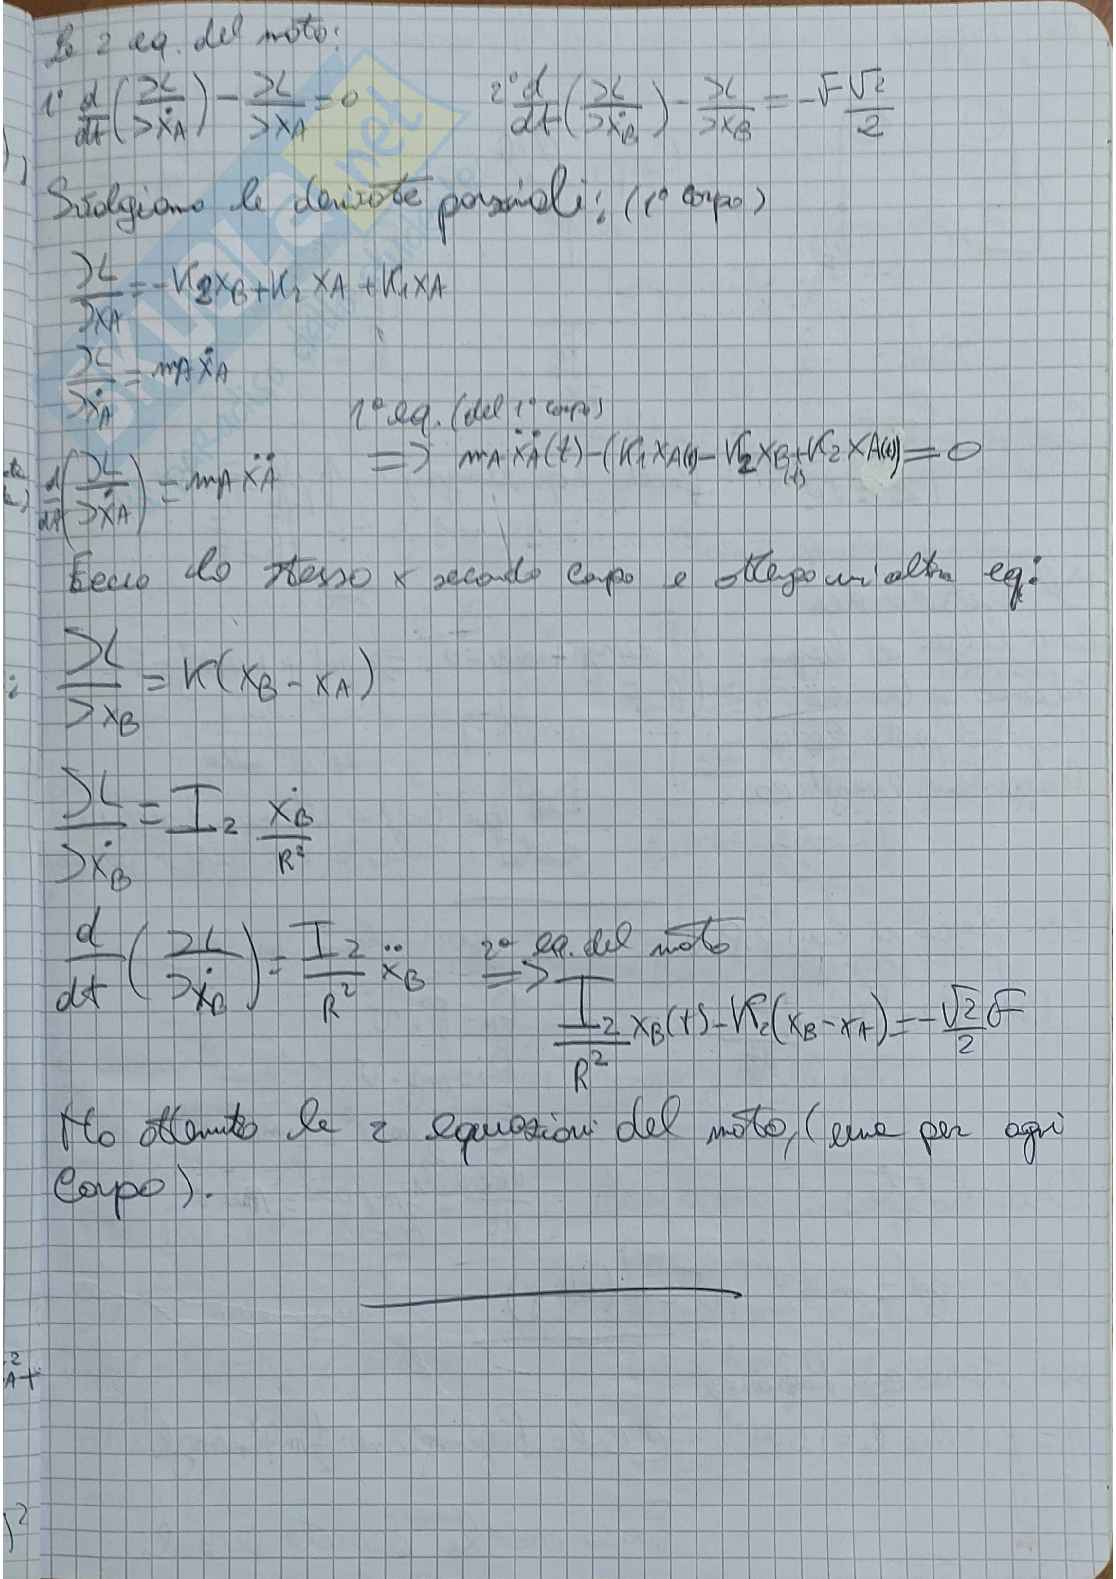 le 2 eq. del moto:
1° d/dt(∂L/∂ẋA) - ∂L/∂xA = 0 2° d/dt(∂L/∂ẋB) - ∂L/∂xB = -F √2/2
Svolgiamo le derivate parziali: (1° corpo)
∂L/∂xA = -K2xB + K2 xA + K1xA
∂L/∂ẋA = mA ẋA
1° eq. (del 1° corpo)
d/dt(∂L/∂ẋA) = mA ẍA => mA ẍA(t) - (K1 xA(t) - K2 xB(t) + K2 xA(t)) = 0
Faccio lo stesso x secondo corpo e ottengo un'altra eq:
∂L/∂xB = K(xB - xA)
∂L/∂ẋB = I2 ẋB/R²
d/dt(∂L/∂ẋB) = I2/R² ẍB => 2° eq. del moto
I2/R² xB(t) - K2(xB - xA) = -√2/2 F
Ho ottenuto le 2 equazioni del moto, (una per ogni
corpo).
SKUOLA.net